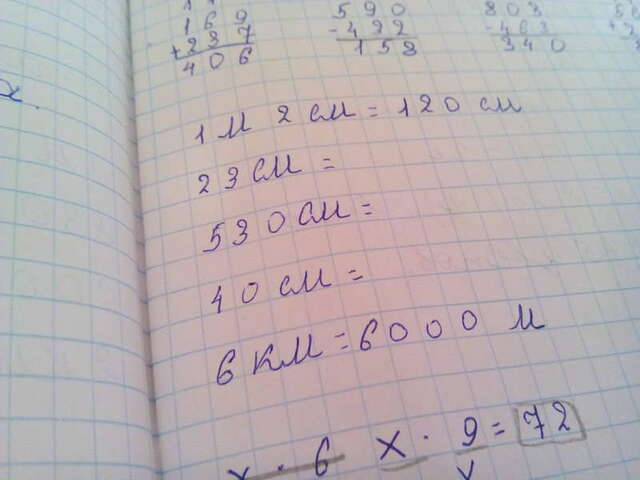 169 590 803
+237 -432 -463
406 158 340
1 м 2 см = 120 см
23 см =
530 см =
40 см =
6 км = 6000 м
x · 6 x · 9 = 72